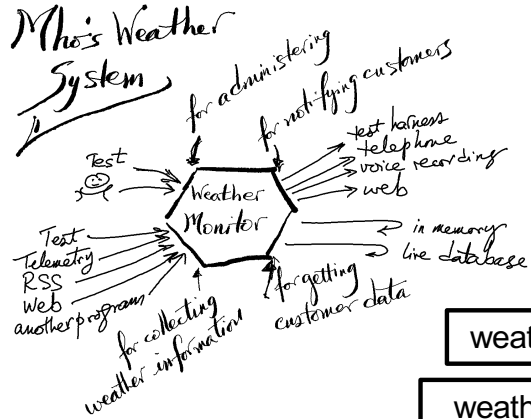 Mho's Weather
System
for administering
for notifying customers
Test
test harness
telephone
voice recording
web
Weather
Monitor
in memory
live database
Test
Telemetry
RSS
Web
another program
for collecting
weather information
for getting
customer data
weat
weath